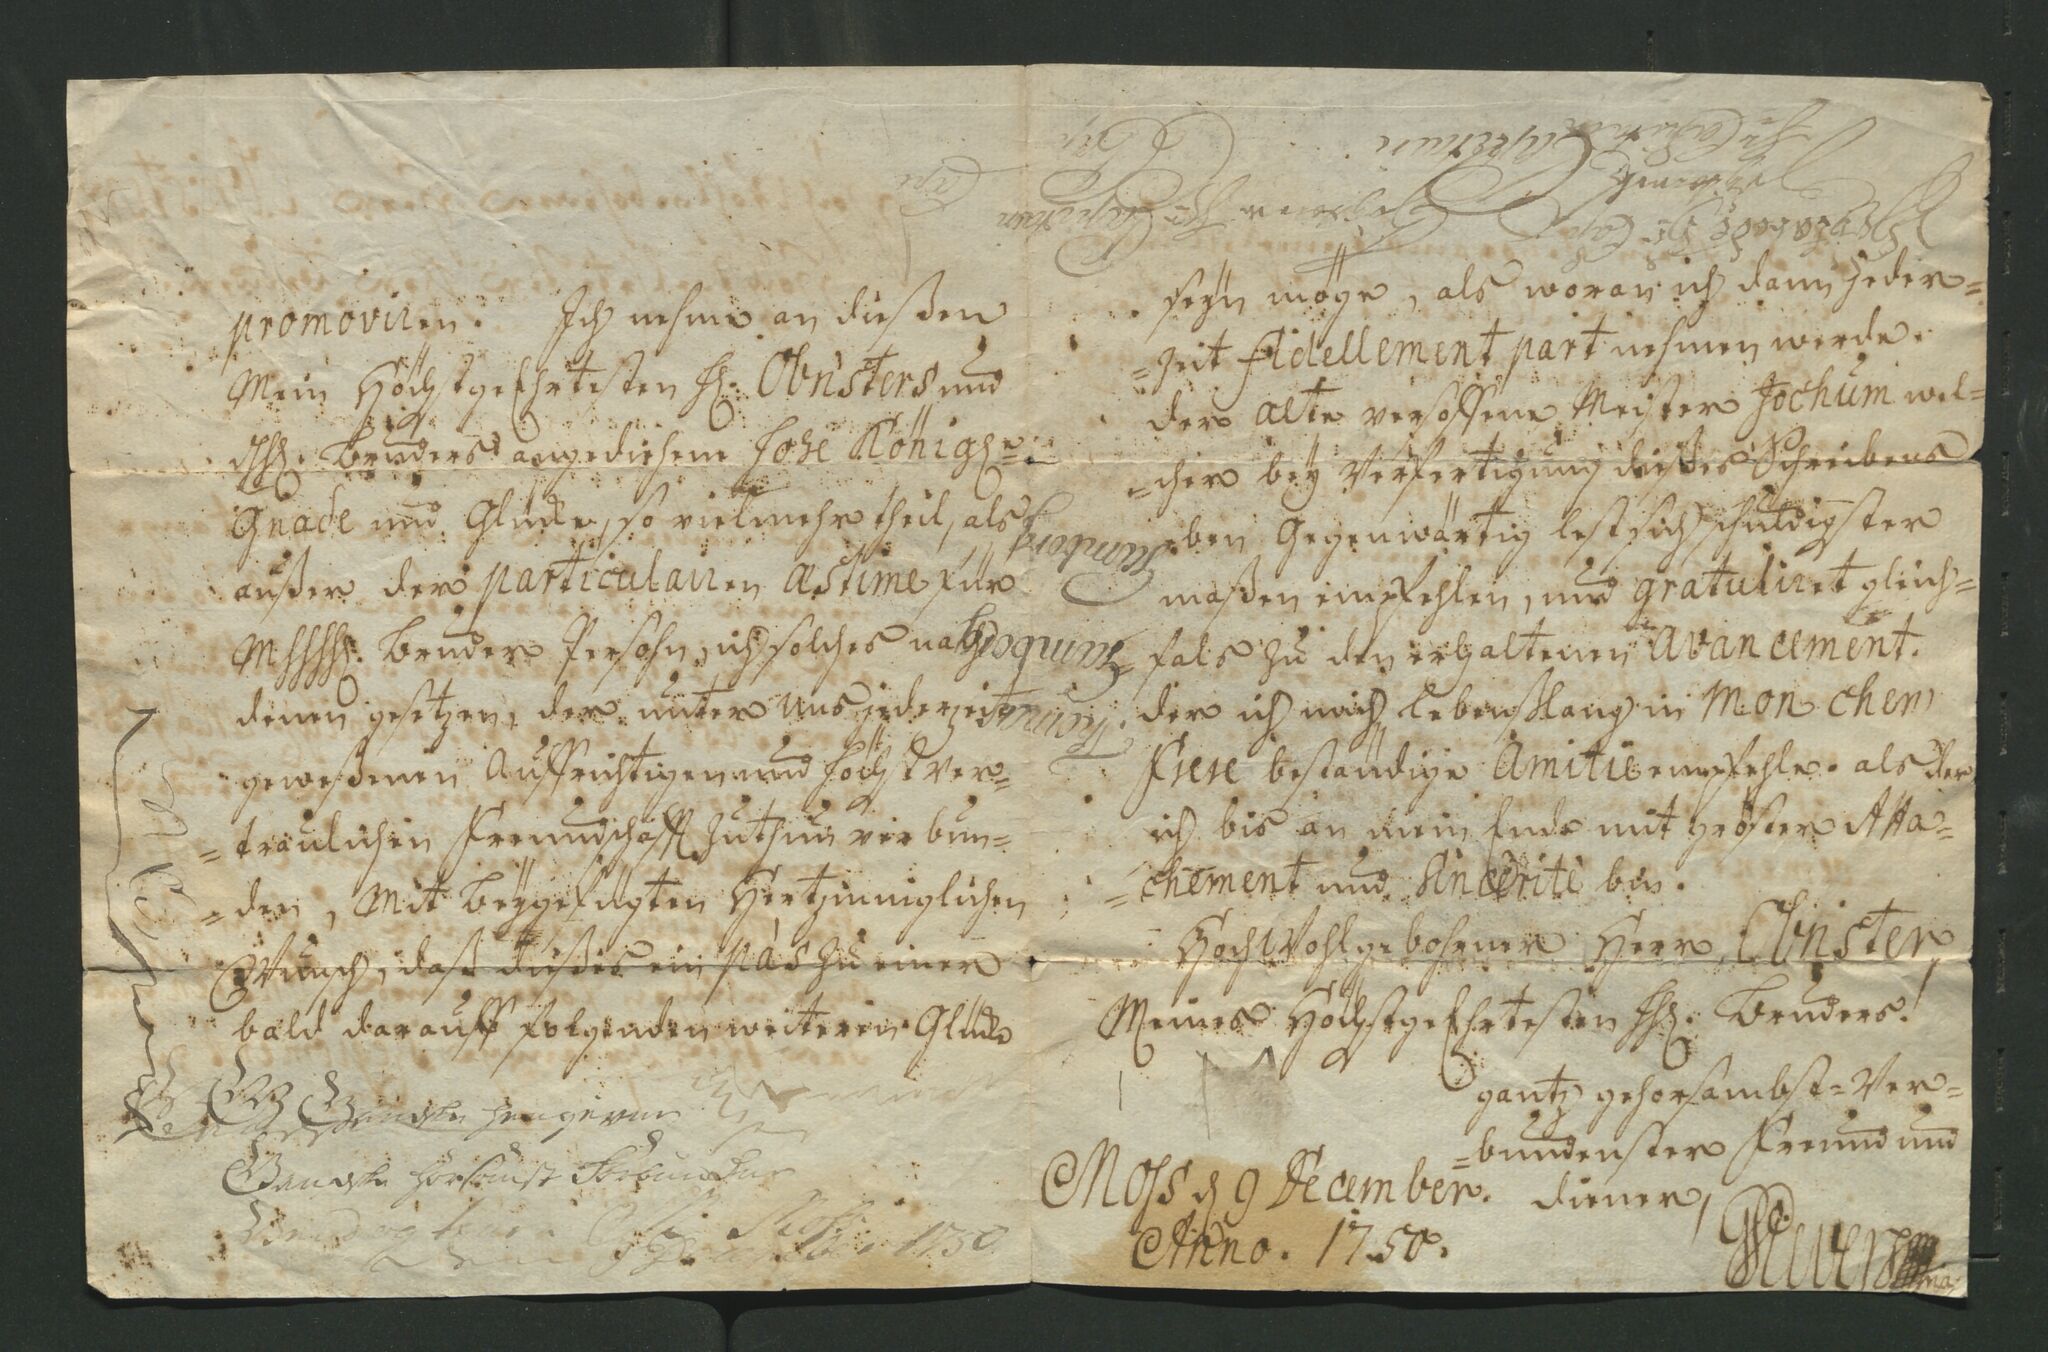 promoviren. Ich nehme an dießen
Mein Höchstgeehrtesten H: Obristers und
HH. Bruders angediehene hohe Königl=
Gnade und Glücke, so vielmehr theil, als
außer der particulairen Æstime für
MHHHH. Bruder Persohn, ich solches nach
denen gesetzen, der unter uns jederzeit
geweßenen Auffrichtigen und höchst ver=
=traulichen Freundschafft zuthun verbun=
=den, Mit beygefügten Hertzinniglichen
Wunsch, daß dießes ein pas zu einer
bald darauff folgenden weiteren Glücke
Ganske
Ganske forbunden
1750
seyn möge, als woran ich dann jeder=
=zeit fidellement part nehmen werde.
der alte versoffene Meister Jochum wel=
=cher bey Verfertigung dießes Schreibens
eben gegenwärtig lest sich schuldigster
maßen empfehlen, und gratuliret gleich=
=fals zu den erhaltenen Avancement.
der ich mich lebenßlang in Mon cher
Frere beständige Amitie empfehle. als der
ich bis an mein Ende mit größter Atta=
=chement und Sincerité bin.
HochWohlgebohrner Herr Obrister,
Meines Höchstgeehrtesten HH. Bruders!
gantz gehorsambst=Ver=
=bundenster Freund und
diener,
Moss d 9 December.
Anno. 1750.